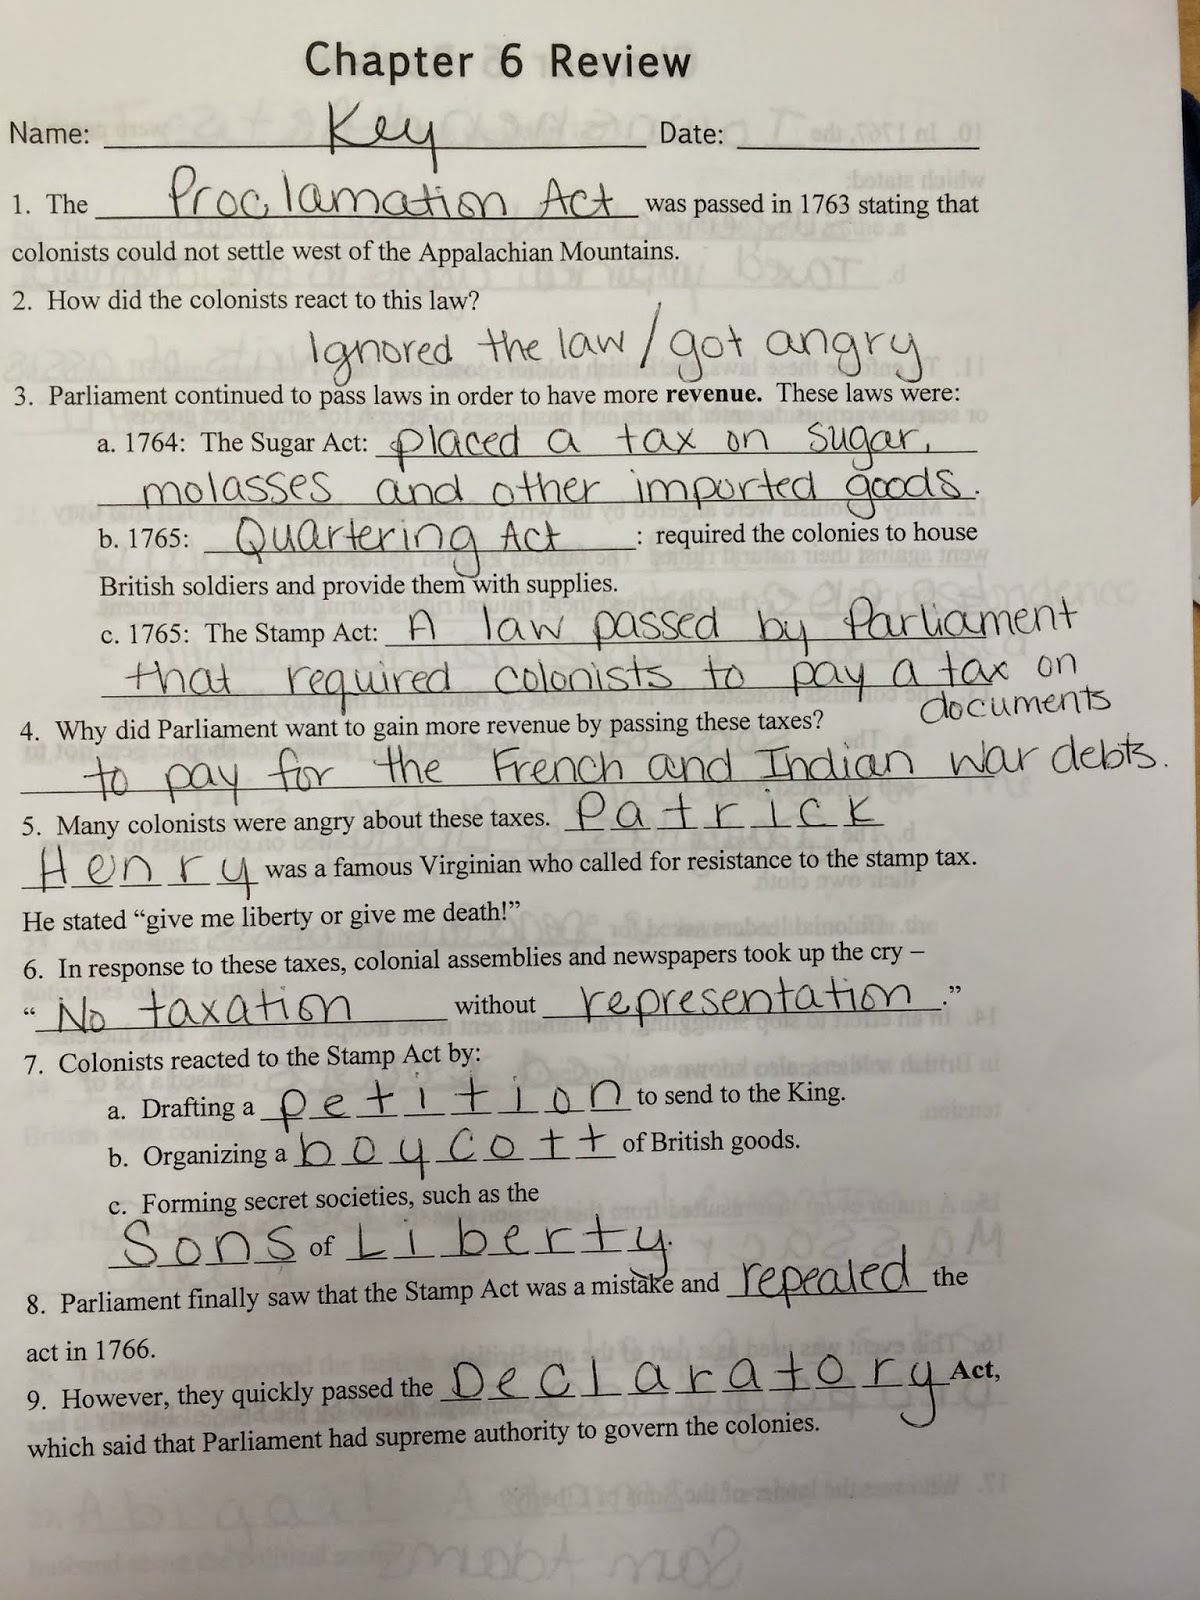 Chapter 6 Review
Name: Key Date:
1. The Proclamation Act was passed in 1763 stating that
colonists could not settle west of the Appalachian Mountains.
2. How did the colonists react to this law?
Ignored the law/got angry
3. Parliament continued to pass laws in order to have more revenue. These laws were:
a. 1764: The Sugar Act: placed a tax on sugar,
molasses and other imported goods.
b. 1765: Quartering Act : required the colonies to house
British soldiers and provide them with supplies.
c. 1765: The Stamp Act: A law passed by Parliament
that required colonists to pay a tax on
documents
4. Why did Parliament want to gain more revenue by passing these taxes?
to pay for the French and Indian war debts.
5. Many colonists were angry about these taxes. Patrick
Henry was a famous Virginian who called for resistance to the stamp tax.
He stated “give me liberty or give me death!”
6. In response to these taxes, colonial assemblies and newspapers took up the cry –
“No taxation without representation.”
7. Colonists reacted to the Stamp Act by:
a. Drafting a petition to send to the King.
b. Organizing a boycott of British goods.
c. Forming secret societies, such as the
Sons of Liberty.
8. Parliament finally saw that the Stamp Act was a mistake and repealed the
act in 1766.
9. However, they quickly passed the Declaratory Act,
which said that Parliament had supreme authority to govern the colonies.